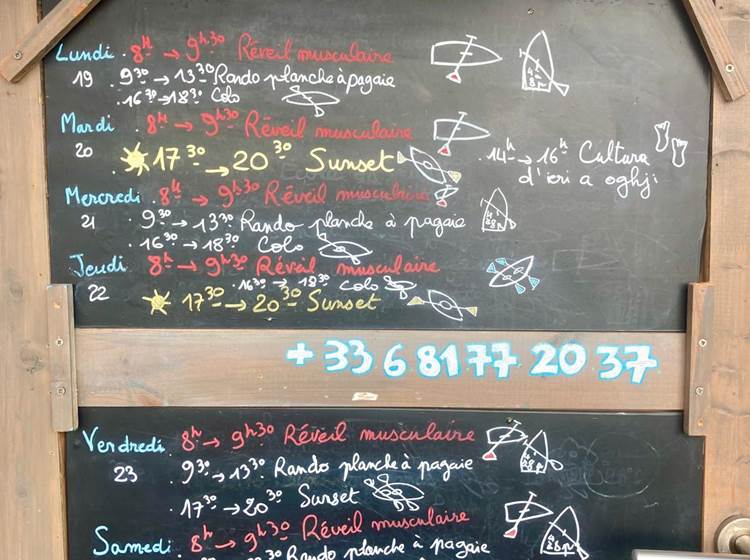 Lundi 8h → 9h30 Réveil musculaire
19 9 30 → 13 30 Rando planche à pagaie
16 30 → 18 30 Colo
Mardi 8h → 9h30 Réveil musculaire
20 17 30 → 20 30 Sunset
14h → 16h Cultura
d'eri a oghji
Mercredi 8h → 9h30 Réveil musculaire
21 9 30 → 13 30 Rando planche à pagaie
16 30 → 18 30 Colo
Jeudi 8h → 9h30 Réveil musculaire
22 16 30 → 18 30 Colo
17 30 → 20 30 Sunset
+33 6 81 77 20 37
Verdredi 8h → 9h30 Réveil musculaire
23 9 30 → 13 30 Rando planche à pagaie
17 30 → 20 30 Sunset
Samedi 8h → 9h30 Réveil musculaire
Rando planche à pagaie